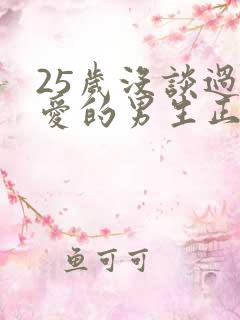 25歲沒談過
愛的男生正
魚可可